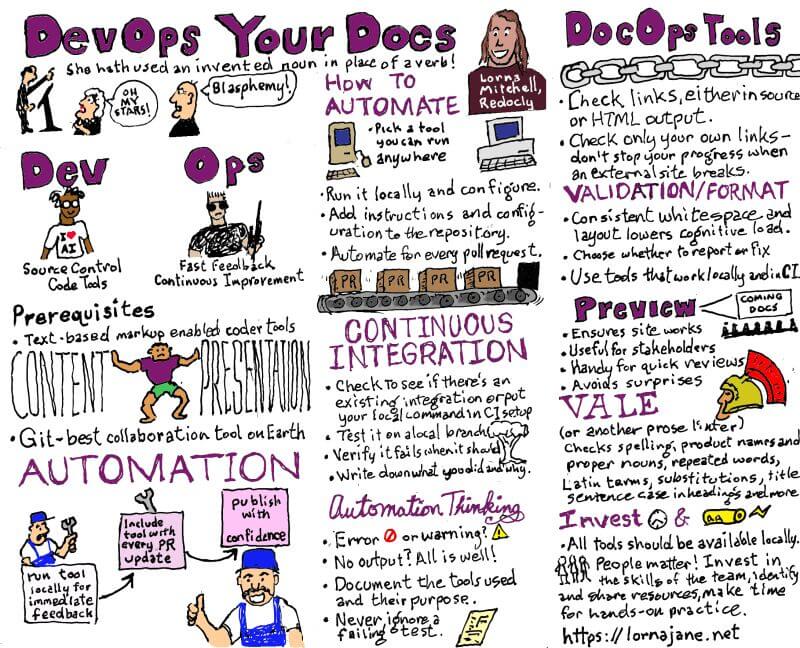 DevOps Your Docs
She hath used an invented noun in place of a verb!
OH
MY
STARS!
Blasphemy!
Dev
I ❤ AI
Source Control
Code Tools
Ops
Fast Feedback
Continuous Improvement
Prerequisites
• Text-based markup enabled coder tools
CONTENT PRESENTATION
• Git-best collaboration tool on Earth
AUTOMATION
run tool
locally for
immediate
feedback
Include
tool with
every PR
update
Publish
with
confidence
Lorna
Mitchell,
Redocly
HOW TO
AUTOMATE
• Pick a tool
you can run
anywhere
• Run it locally and configure.
• Add instructions and config-
uration to the repository.
• Automate for every pull request.
PR PR PR PR
CONTINUOUS
INTEGRATION
• Check to see if there's an
existing integration or put
your local command in CI setup
• Test it on a local branch
• Verify it fails when it should
• Write down what you did and why.
Automation Thinking
• Error or warning?
• No output? All is well!
• Document the tools used
and their purpose.
• Never ignore a
failing test.
DocOps Tools
• Check links, either in source
or HTML output.
• Check only your own links-
don't stop your progress when
an external site breaks.
VALIDATION/FORMAT
• Consistent whitespace and
layout lowers cognitive load.
• Choose whether to report or fix
• Use tools that work locally and in CI
Preview
COMING
DOCS
• Ensures site works
• Useful for stakeholders
• Handy for quick reviews
• Avoids surprises
VALE
(or another prose linter)
Checks spelling, product names and
proper nouns, repeated words,
Latin terms, substitutions, title
sentence case in headings and more
Invest &
• All tools should be available locally.
People matter! Invest in
the skills of the team, identify
and share resources, make time
for hands-on practice.
https://lornajane.net